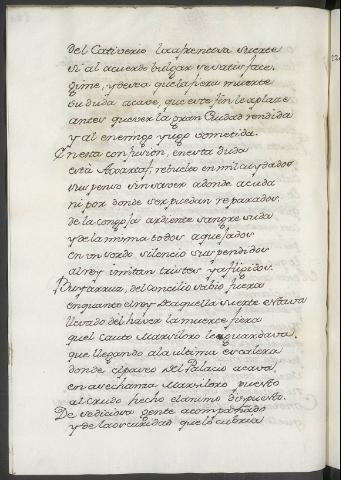 del Cativerio la afrentosa suerte
si al acuerdo vulgar se satisface.
gime, y desea que la fiera muerte
su duda acave, que este fin le aplaze
antes que ver la gran Ciudad rendida
y al enemigo yugo sometida.
En esta confusion, en esta duda
está Axataf, rebuelto en mil cuydados
suspenso sin saver adonde acuda
ni por donde ser puedan reparados.
de la congoja ardiente sangre suda
y de la misma todos aquejados
en un sordo silencio suspendidos
al rey imitan tristes y afligidos.
del concilio salio fuera
enquanto el rey de aquella suerte estava
llevado del haver la muerte fiera
quel Cauto Marsiloro le guardava.
que llegando a la ultima escalera
donde el paseo del Palacio acava,
en asechanza Marsiloro puesto
al crudo hecho el animo dispuesto.
De sediciosa gente acompañado
y de la oscuridad que lo cubria